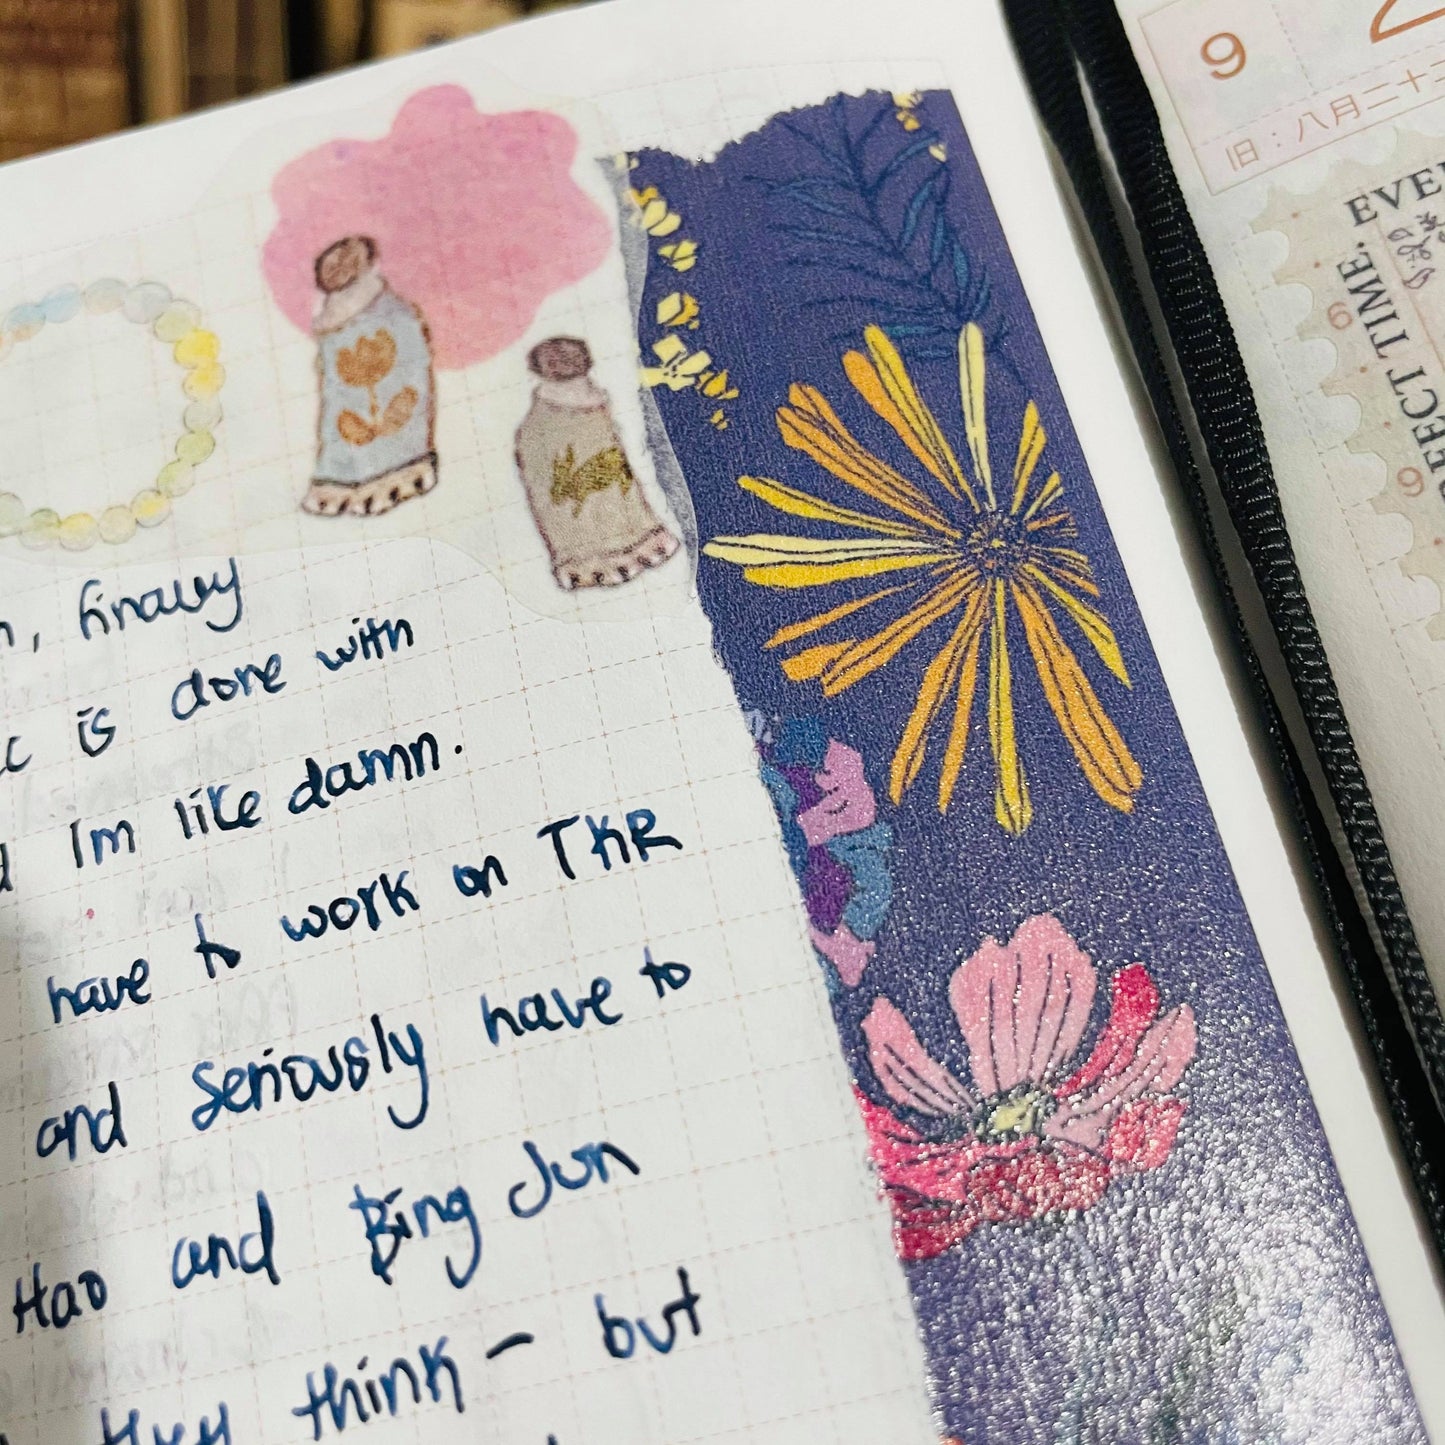 finally
is done with
Im like damn.
have to work on TKR
and seriously have to
Hao and Bing Jun
they think - but
9
旧：八月二十三
EVE
TIME.
6
9